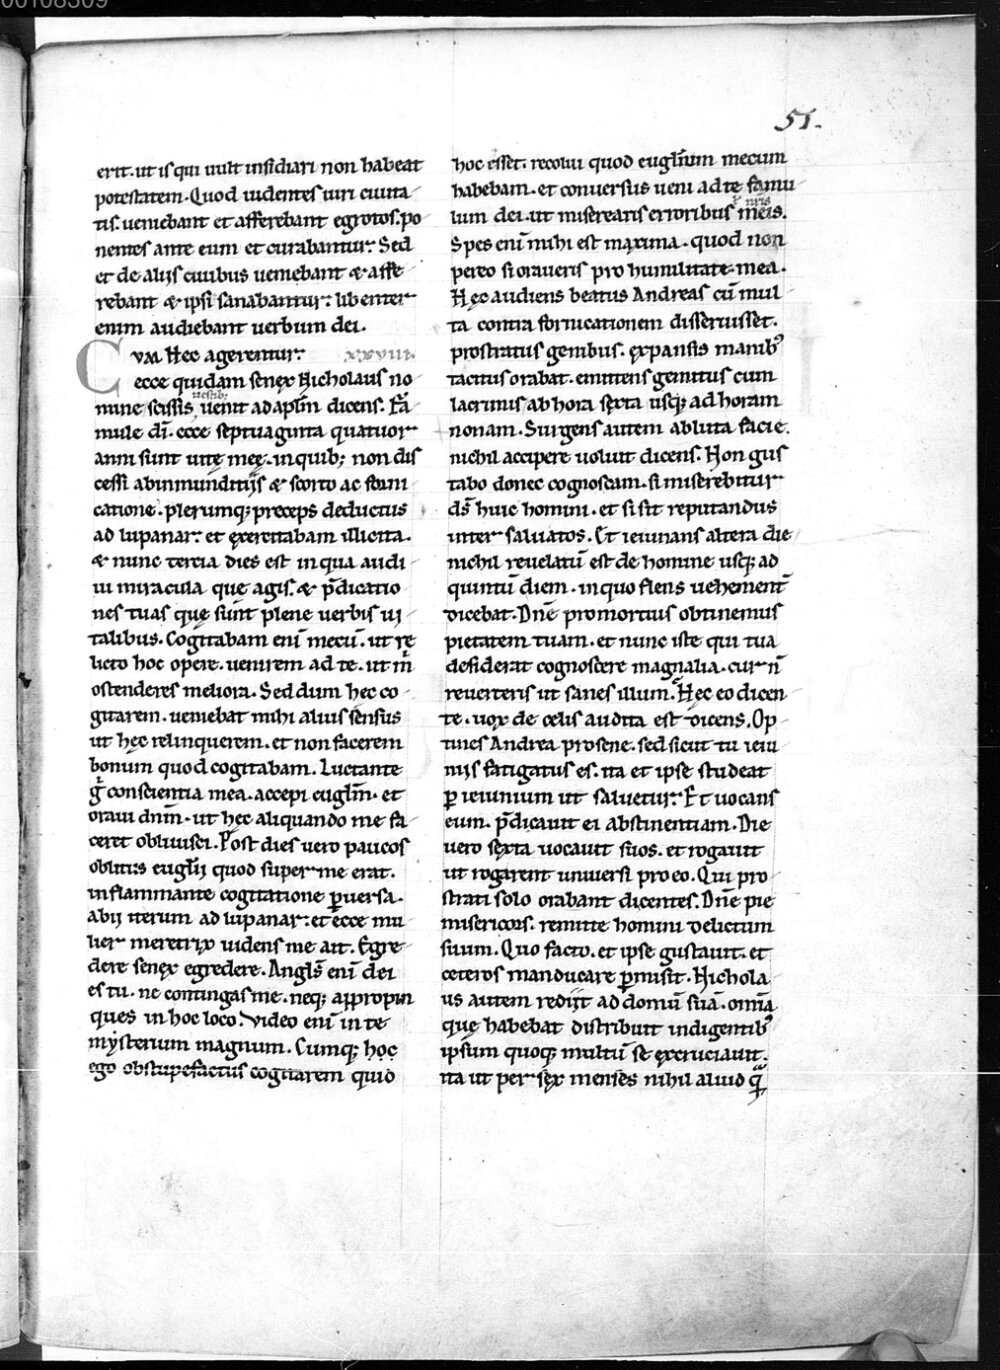 00108309
51.
erit. ut is qui uult insidiari non habeat
potestatem. Quod uidentes uiri ciuita
tis. ueniebant et afferebant egrotos. po
nentes ante eum et curabantur. Sed
et de aliis ciuibus ueniebant & affe
rebant & ipsi sanabantur. libenter
enim audiebant uerbum dei.
CVM Hec agerentur. xxviii.
ecce quidam senex Nicholaus no
mine scissis uestib; uenit ad aplm̄ dicens. Fa
mule dī. ecce septuaginta quatuor
anni sunt uitę meę. in quib; non dis
cessi ab inmunditiis & scorto ac forni
catione. plerumq; preceps deductus
ad lupanar. et exercitabam illicita.
& nunc tercia dies est in qua audi
ui miracula quę agis. & p̄dicatio
nes tuas quę sunt plene uerbis ui
talibus. Cogitabam eni mecū. ut re
licto hoc opere. uenirem ad te. ut m̄
ostenderes meliora. Sed dum hec co
gitarem. ueniebat mihi alius sensus
ut hęc relinquerem. et non facerem
bonum quod cogitabam. Luctante
g̊ conscientia mea. accepi euglm̄. et
oraui dnm̄. ut hęc aliquando me fa
ceret obliuisci. Post dies uero paucos
oblitus euglij quod super me erat.
inflammante cogitatione puersa.
abij iterum ad lupanar. et ecce mu
lier meretrix uidens me ait. Egre
dere senex egredere. Angls̄ enī dei
es tu. ne contingas me. neq; appropin
ques in hoc loco. Video enī in te
mysterium magnum. Cumq; hoc
ego obstupefactus cogitarem quid
hoc esset. recolui quod euglīum mecum
habebam. et conuersus ueni ad te famu
lum dei. ut miserearis erroribus meis. ł nris
Spes enī mihi est maxima. quod non
pereo si oraueris pro humilitate mea.
Hęc audiens beatus Andreas cū mul
ta contra fornicationem disseruisset.
prostratus genibus. expansis manib;
tacitus orabat. emittens gemitus cum
lacrimis ab hora sexta usq; ad horam
nonam. Surgens autem abluta facie.
nichil accipere uoluit dicens. Non gus
tabo donec cognoscam. si miserebitur
ds̄ huic homini. et si sit reputandus
inter saluatos. Et ieiunans altera die
nichil reuelatū est de homine usq; ad
quintū diem. in quo flens uehement̄
dicebat. Dnē pro mortuis obtinemus
pietatem tuam. et nunc iste qui tua
desiderat cognoscere magnalia. cur n̄
reuerteris ut sanes illum. Hęc eo dicen
te. uox de celis audita est dicens. Op
tines Andrea pro sene. sed sicut tu ieiu
niis fatigatus es. ita et ipse studeat
p ieiunium ut saluetur. Et uocans
eum. p̄dicauit ei abstinentiam. Die
uero sexta uocauit suos. et rogauit
ut rogarent uniuersi pro eo. Qui pro
strati solo orabant dicentes. Dnē pie
misericors. remitte homini delictum
suum. Quo facto. et ipse gustauit. et
ceteros manducare pmisit. Nichola
us autem redijt ad domū suā. omā
quę habebat distribuit indigentib;
ipsum quoq; multū se excruciauit.
ita ut per sex menses nihil aliud q̄